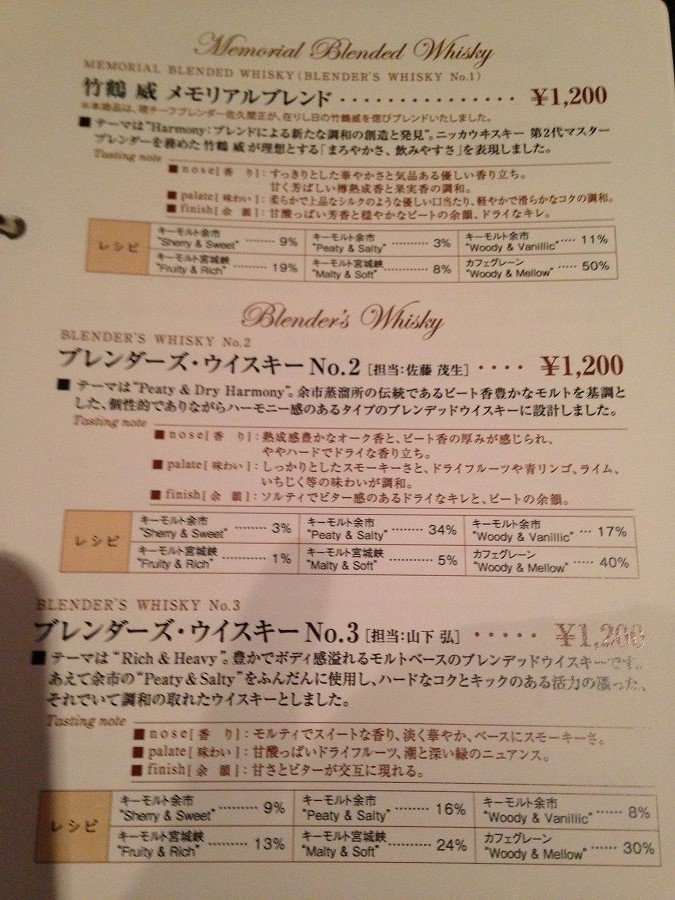 Memorial Blended Whisky
MEMORIAL BLENDED WHISKY (BLENDER'S WHISKY No.1)
竹鶴 威 メモリアルブレンド ················ ¥1,200
※本商品は、現チーフブレンダー佐久間正が、在りし日の竹鶴威を偲びブレンドいたしました。
■ テーマは"Harmony:ブレンドによる新たな調和の創造と発見"。ニッカウヰスキー 第2代マスター
ブレンダーを務めた 竹鶴 威 が理想とする「まろやかさ、飲みやすさ」を表現しました。
Tasting note
■ nose[ 香 り ]: すっきりとした華やかさと気品ある優しい香り立ち。
甘く芳ばしい樽熟成香と果実香の調和。
■ palate[ 味わい ]: 柔らかで上品なシルクのような優しい口当たり、軽やかで滑らかなコクの調和。
■ finish[ 余 韻 ]: 甘酸っぱい芳香と穏やかなピートの余韻、ドライなキレ。
レシピ
キーモルト余市 "Sherry & Sweet" ········ 9%
キーモルト余市 "Peaty & Salty" ·········· 3%
キーモルト余市 "Woody & Vanillic" ···· 11%
キーモルト宮城峡 "Fruity & Rich" ········ 19%
キーモルト宮城峡 "Malty & Soft" ·········· 8%
カフェグレーン "Woody & Mellow" ····· 50%
Blender's Whisky
BLENDER'S WHISKY No.2
ブレンダーズ・ウイスキー No.2 [担当:佐藤 茂生] ···· ¥1,200
■ テーマは"Peaty & Dry Harmony"。余市蒸溜所の伝統であるピート香豊かなモルトを基調と
した、個性的でありながらハーモニー感のあるタイプのブレンデッドウイスキーに設計しました。
Tasting note
■ nose[ 香 り ]: 熟成感豊かなオーク香と、ピート香の厚みが感じられ、
ややハードでドライな香り立ち。
■ palate[ 味わい ]: しっかりとしたスモーキーさと、ドライフルーツや青リンゴ、ライム、
いちじく等の味わいが調和。
■ finish[ 余 韻 ]: ソルティでビター感のあるドライなキレと、ピートの余韻。
レシピ
キーモルト余市 "Sherry & Sweet" ········ 3%
キーモルト余市 "Peaty & Salty" ········ 34%
キーモルト余市 "Woody & Vanillic" ··· 17%
キーモルト宮城峡 "Fruity & Rich" ·········· 1%
キーモルト宮城峡 "Malty & Soft" ·········· 5%
カフェグレーン "Woody & Mellow" ····· 40%
BLENDER'S WHISKY No.3
ブレンダーズ・ウイスキー No.3 [担当:山下 弘] ····· ¥1,200
■ テーマは "Rich & Heavy"。豊かでボディ感溢れるモルトベースのブレンデッドウイスキーです。
あえて余市の"Peaty & Salty"をふんだんに使用し、ハードなコクとキックのある活力の漲った、
それでいて調和の取れたウイスキーとしました。
Tasting note
■ nose[ 香 り ]: モルティでスイートな香り、淡く華やか、ベースにスモーキーさ。
■ palate[ 味わい ]: 甘酸っぱいドライフルーツ、潮と深い緑のニュアンス。
■ finish[ 余 韻 ]: 甘さとビターが交互に現れる。
レシピ
キーモルト余市 "Sherry & Sweet" ·········· 9%
キーモルト余市 "Peaty & Salty" ········ 16%
キーモルト余市 "Woody & Vanillic" ······ 8%
キーモルト宮城峡 "Fruity & Rich" ·········· 13%
キーモルト宮城峡 "Malty & Soft" ········ 24%
カフェグレーン "Woody & Mellow" ······ 30%